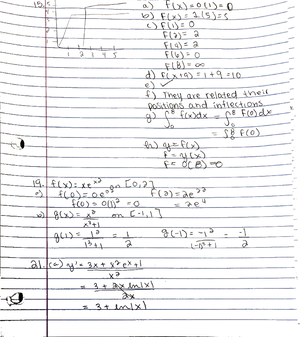 15.
a) f(x)=0(1)=0
b) F(x)=1(5)=5
c) F(1)=0
F(2)=2
F(4)=2
F(6)=0
F(8)=∞
1 2 4 5
d) F(x+9)=1+9=10
e) ✓
f) They are related their
positions and inflections
g) ∫₀⁸ f(x)dx = ∫₀⁸ F(0)dx
= ∫₀⁸ F(0)
h) y=f(x)
F=y(x)
F=0(8)=0
19. f(x)=xe^x² on [0,2]
f(0)=0e^0² f(2)=2e^2²
f(0)=0(1)²=0 =2e⁴
b) g(x)=x³/x³+1 on [-1,1]
g(1)=1³/1³+1=1/2 g(-1)=-1³/(-1)³+1=-1/2
21. (a) y'=3x+x²eˣ+1/x²
=3+2x ln|x|/2x
=3+ln|x|